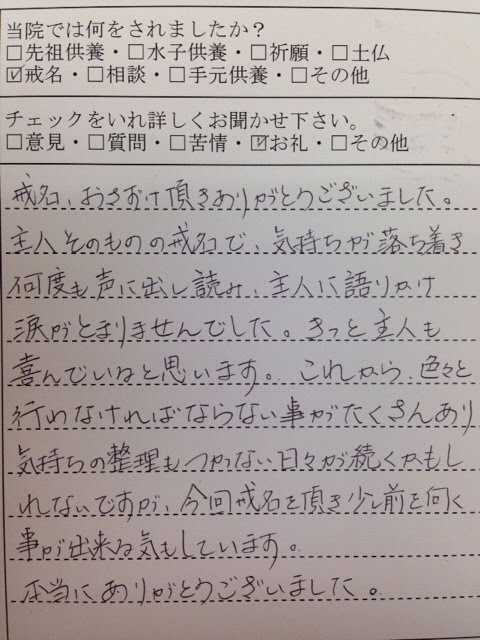 当院では何をされましたか？
□先祖供養・□水子供養・□祈願・□土仏
☑戒名・□相談・□手元供養・□その他
チェックをいれ詳しくお聞かせ下さい。
□意見・□質問・□苦情・☑お礼・□その他
戒名、おさずけ頂きありがとうございました。
主人そのものの戒名で、気持ちが落ち着き
何度も声に出し読み、主人に語りかけ
涙がとまりませんでした。きっと主人も
喜んでいると思います。これから、色々と
行わなければならない事がたくさんあり
気持ちの整理もつかない日々が続くかもし
れないですが、今回戒名を頂き少し前を向く
事が出来る気もしています。
本当にありがとうございました。